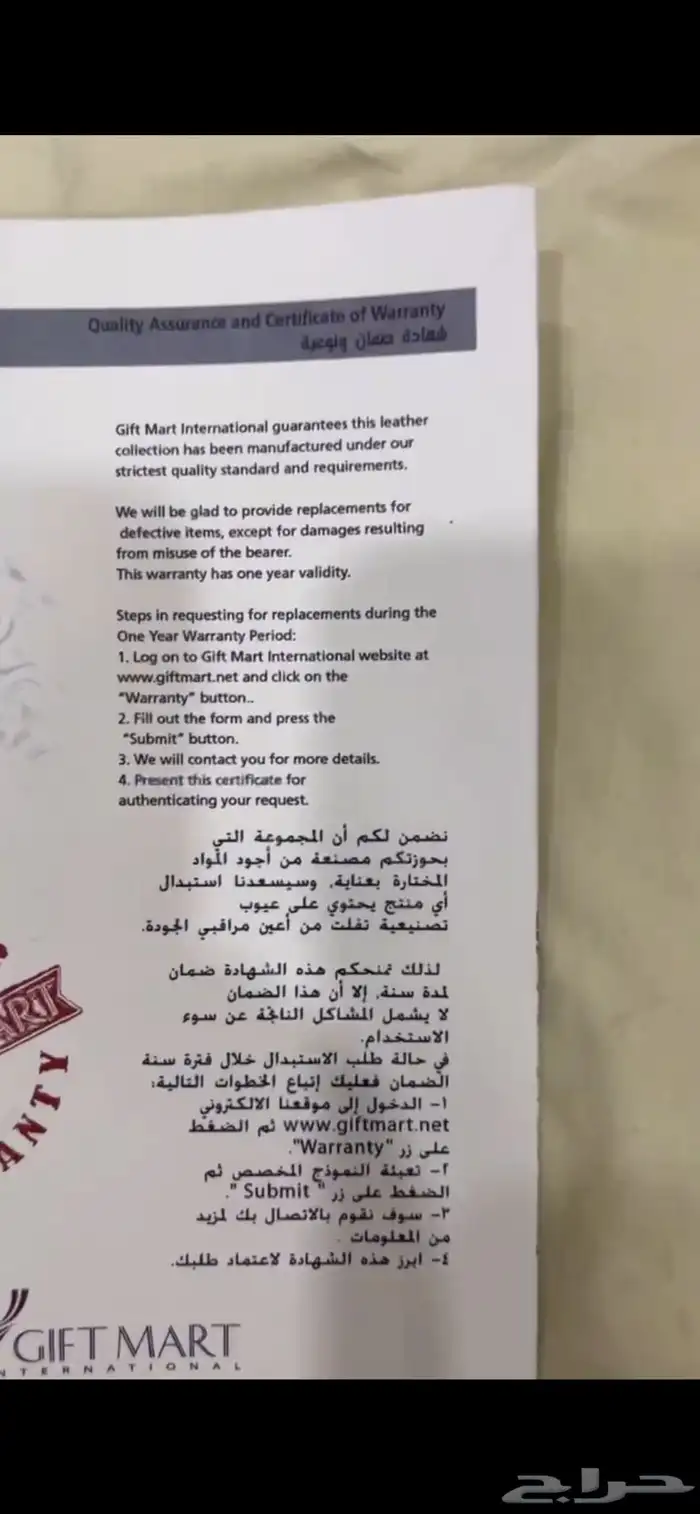 Quality Assurance and Certificate of Warranty
شهادة ضمان ونوعية
Gift Mart International guarantees this leather
collection has been manufactured under our
strictest quality standard and requirements.
We will be glad to provide replacements for
defective items, except for damages resulting
from misuse of the bearer.
This warranty has one year validity.
Steps in requesting for replacements during the
One Year Warranty Period:
1. Log on to Gift Mart International website at
www.giftmart.net and click on the
"Warranty" button..
2. Fill out the form and press the
"Submit" button.
3. We will contact you for more details.
4. Present this certificate for
authenticating your request.
نضمن لكم أن المجموعة التي
بحوزتكم مصنعة من أجود المواد
المختارة بعناية، وسيسعدنا استبدال
أي منتج يحتوي على عيوب
تصنيعية تفلت من أعين مراقبي الجودة.
لذلك تمنحكم هذه الشهادة ضمان
لمدة سنة، إلا أن هذا الضمان
لا يشمل المشاكل الناتجة عن سوء
الاستخدام.
في حالة طلب الاستبدال خلال فترة سنة
الضمان فعليك إتباع الخطوات التالية:
١- الدخول إلى موقعنا الالكتروني
www.giftmart.net ثم الضغط
على زر "Warranty".
٢- تعبئة النموذج المخصص ثم
الضغط على زر " Submit ".
٣- سوف نقوم بالاتصال بك لمزيد
من المعلومات .
٤- ابرز هذه الشهادة لاعتماد طلبك.
ART
ANTY
GIFT MART
NTERNATIONAL
حراج